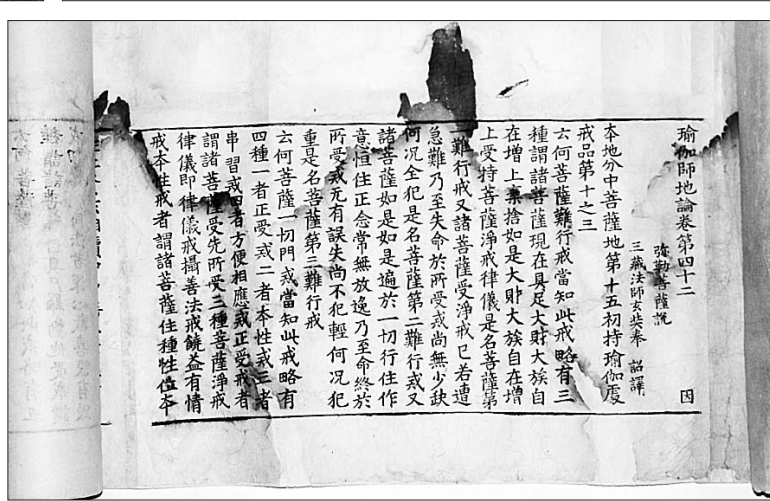 瑜伽師地論卷第四十二 因
弥勒菩薩說
三藏法師玄奘奉 詔譯
本地分中菩薩地第十五初持瑜伽處
戒品第十之三
云何菩薩難行戒當知此戒略有三
種謂諸菩薩現在具足大財大族自
在增上棄捨如是大財大族自在增
上受持菩薩淨戒律儀是名菩薩第
一難行戒又諸菩薩受淨戒已若遭
急難乃至失命於所受戒尚無少缺
何況全犯是名菩薩第二難行戒又
諸菩薩如是如是遍於一切行住作
意恒住正念常無放逸乃至命終於
所受戒无有誤失尚不犯輕何況犯
重是名菩薩第三難行戒
云何菩薩一切門戒當知此戒略有
四種一者正受戒二者本性戒三者
串習戒四者方便相應戒正受戒者
謂諸菩薩受先所受三種菩薩淨戒
律儀即律儀戒攝善法戒饒益有情
戒本性戒者謂諸菩薩住種性位本